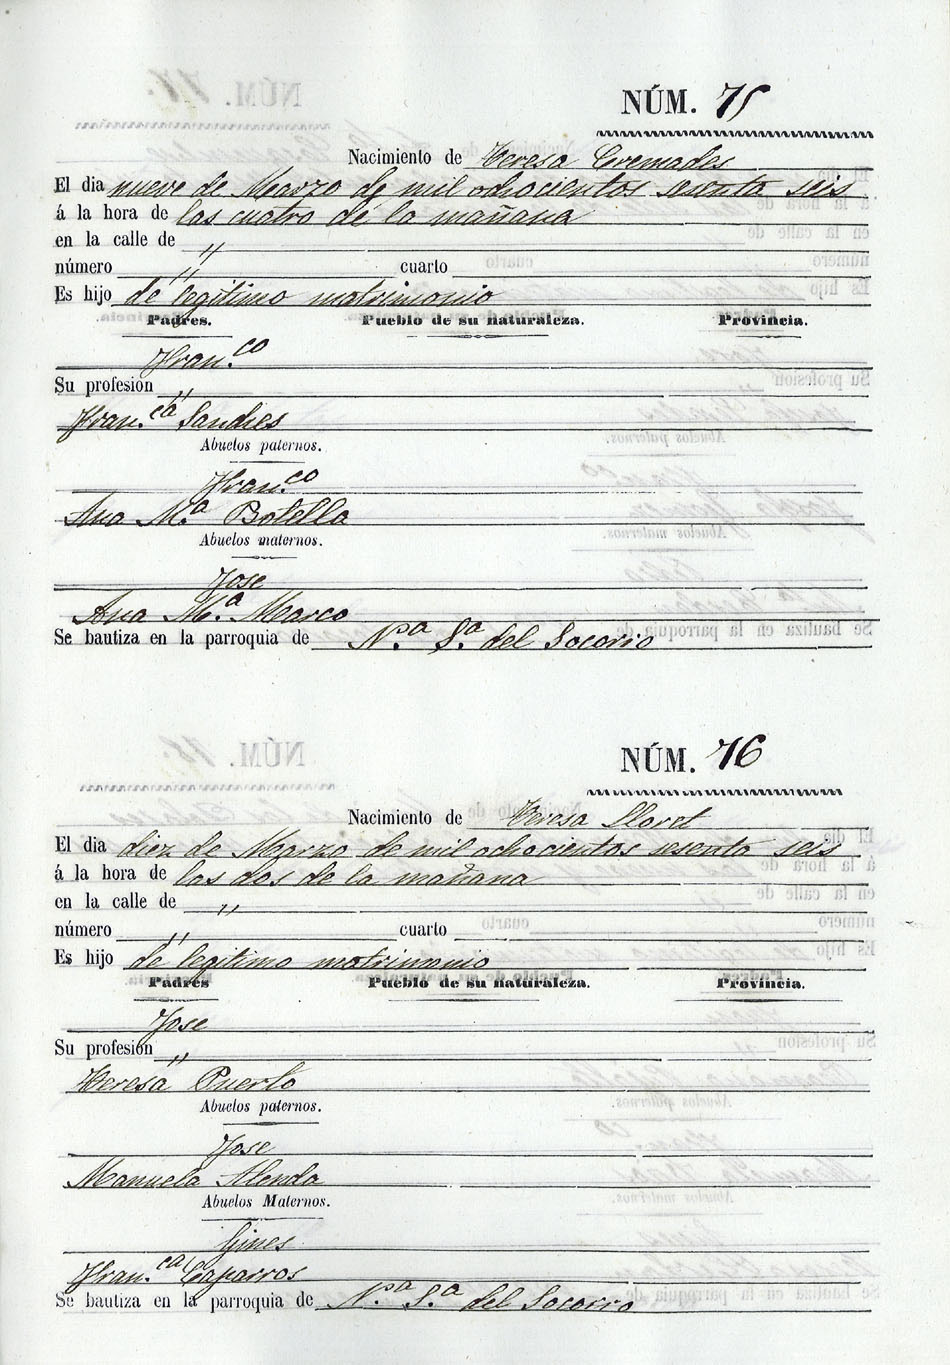 NÚM. 75
Nacimiento de Teresa Cremades
El dia nueve de Marzo de mil ochocientos sesenta seis
á la hora de las cuatro de la mañana
en la calle de "
número " cuarto
Es hijo de legitimo matrimonio
Padres. Pueblo de su naturaleza. Provincia.
Fran.co
Su profesión "
Fran.ca Sandres
Abuelos paternos.
Fran.co
Ana M.a Botella
Abuelos maternos.
Jose
Ana M.a Marco
Se bautiza en la parroquia de N.a S.a del Socorro
NÚM. 76
Nacimiento de Teresa Lloret
El dia diez de Marzo de mil ochocientos sesenta seis
á la hora de las dos de la mañana
en la calle de "
número " cuarto
Es hijo de legitimo matrimonio
Padres Pueblo de su naturaleza. Provincia.
Jose
Su profesión "
Teresa Puerto
Abuelos paternos.
Jose
Manuela Alenda
Abuelos Maternos.
Gines
Fran.ca Caparros
Se bautiza en la parroquia de N.a S.a del Socorro